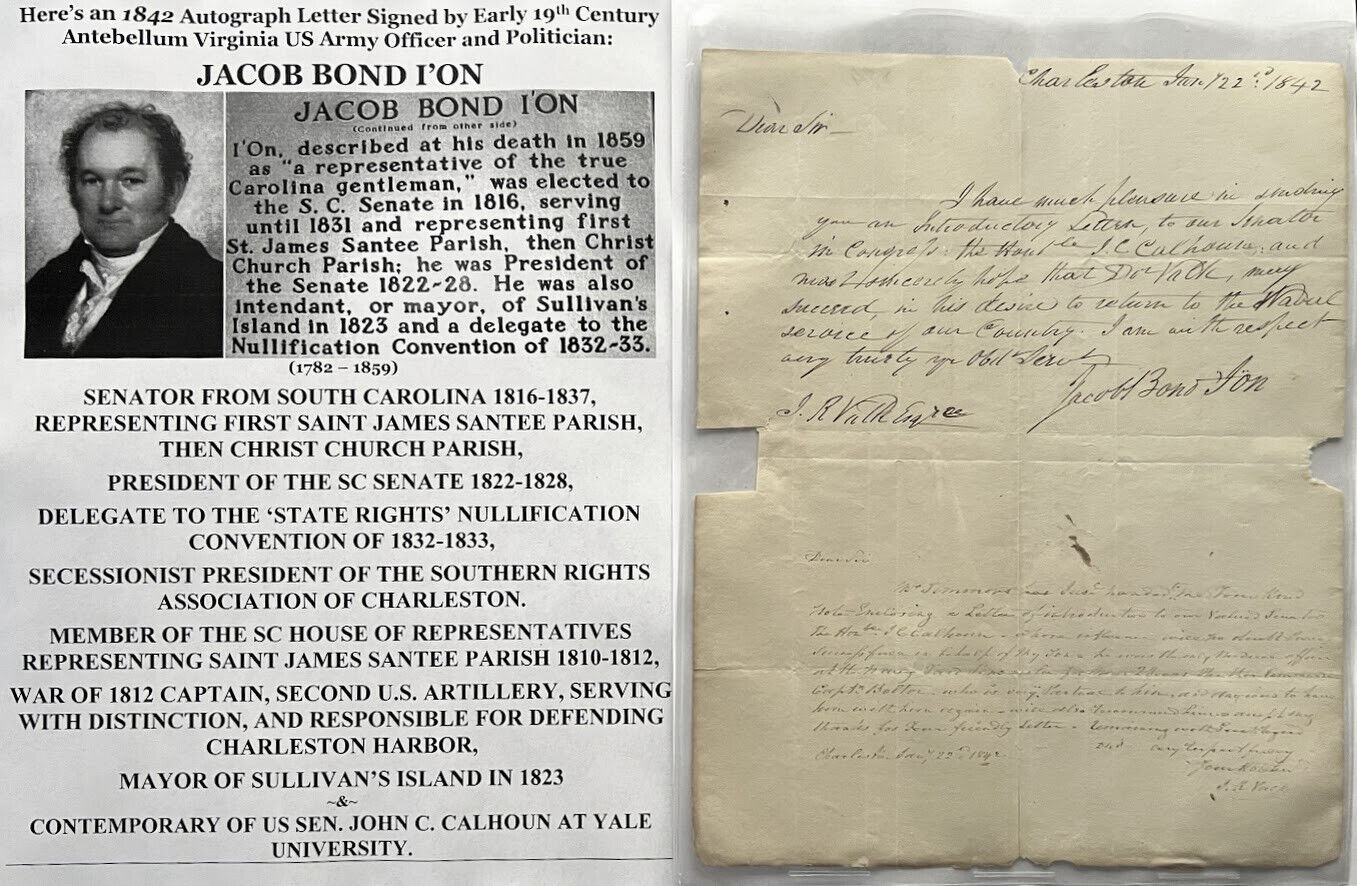 Here's an 1842 Autograph Letter Signed by Early 19th Century
Antebellum Virginia US Army Officer and Politician:
JACOB BOND I'ON
JACOB BOND I'ON
(Continued from other side)
I'On, described at his death in 1859
as "a representative of the true
Carolina gentleman," was elected to
the S. C. Senate in 1816, serving
until 1831 and representing first
St. James Santee Parish, then Christ
Church Parish; he was President of
the Senate 1822-28. He was also
intendant, or mayor, of Sullivan's
Island in 1823 and a delegate to the
Nullification Convention of 1832-33.
(1782 – 1859)
SENATOR FROM SOUTH CAROLINA 1816-1837,
REPRESENTING FIRST SAINT JAMES SANTEE PARISH,
THEN CHRIST CHURCH PARISH,
PRESIDENT OF THE SC SENATE 1822-1828,
DELEGATE TO THE 'STATE RIGHTS' NULLIFICATION
CONVENTION OF 1832-1833,
SECESSIONIST PRESIDENT OF THE SOUTHERN RIGHTS
ASSOCIATION OF CHARLESTON.
MEMBER OF THE SC HOUSE OF REPRESENTATIVES
REPRESENTING SAINT JAMES SANTEE PARISH 1810-1812,
WAR OF 1812 CAPTAIN, SECOND U.S. ARTILLERY, SERVING
WITH DISTINCTION, AND RESPONSIBLE FOR DEFENDING
CHARLESTON HARBOR,
MAYOR OF SULLIVAN'S ISLAND IN 1823
~&~
CONTEMPORARY OF US SEN. JOHN C. CALHOUN AT YALE
UNIVERSITY.
Charleston Jany 22d. 1842
Dear Sir
I have much pleasure in sending
you an Introductory Letter, to our Senator
in Congress the Honble J. C Calhoun: and
most sincerely hope that Dr Valk, may
succeed, in his desire to return to the Naval
service of our Country. I am with respect
very truly yr Obdt Servt
Jacob Bond I'On
J. R Valk Esqre
Dear Sir
Mr Simmons has Just handed me Your kind
Note Enclosing a Letter of introduction to our Valued Senator
The Honble J C Calhoun
in behalf of My Son he was
Capt. Bolton who is very Partial to him
thanks for Your friendly Letter
Charleston Jany 22d 1842 and very Respectfully
J. R Valk